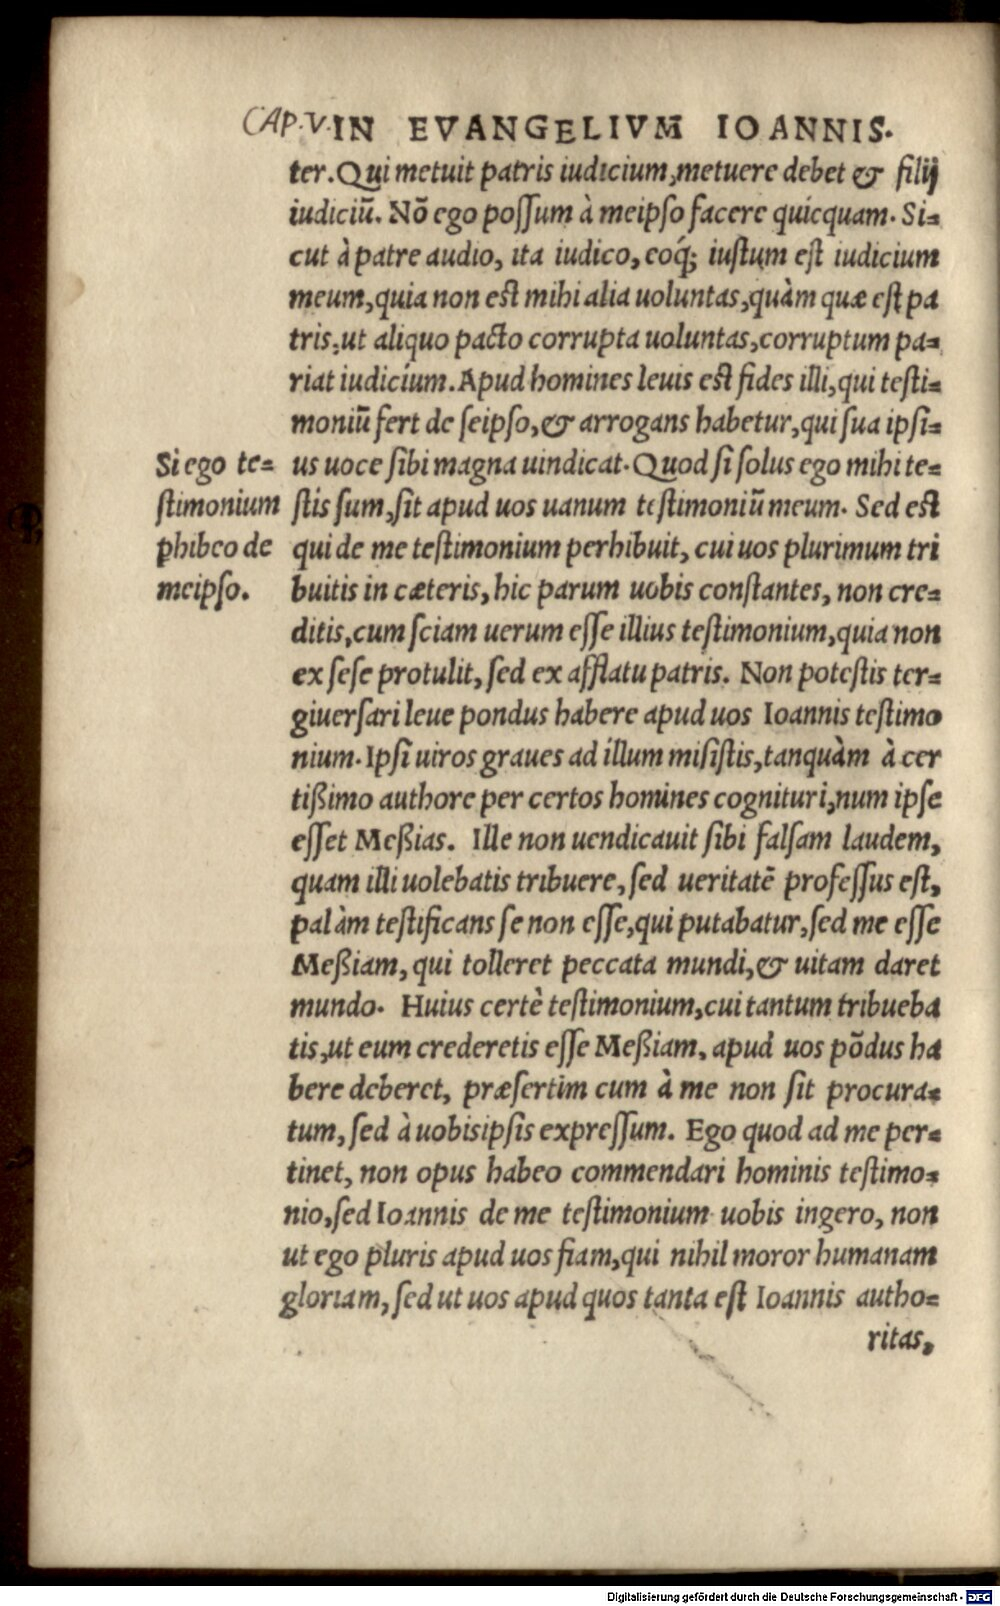 CAP. V. IN EVANGELIVM IOANNIS.
ter. Qui metuit patris iudicium, metuere debet & filij
iudiciũ. Nõ ego possum à meipso facere quicquam. Si=
cut à patre audio, ita iudico, eoq́; iustum est iudicium
meum, quia non est mihi alia uoluntas, quàm quæ est pa
tris, ut aliquo pacto corrupta uoluntas, corruptum pa=
riat iudicium. Apud homines leuis est fides illi, qui testi=
moniũ fert de seipso, & arrogans habetur, qui sua ipsi=
us uoce sibi magna uindicat. Quod si solus ego mihi te=
stis sum, sit apud uos uanum testimoniũ meum. Sed est
qui de me testimonium perhibuit, cui uos plurimum tri
buitis in cæteris, hic parum uobis constantes, non cre=
ditis, cum sciam uerum esse illius testimonium, quia non
ex sese protulit, sed ex afflatu patris. Non potestis ter=
giuersari leue pondus habere apud uos Ioannis testimo
nium. Ipsi uiros graues ad illum misistis, tanquàm à cer
tißimo authore per certos homines cognituri, num ipse
esset Meßias. Ille non uendicauit sibi falsam laudem,
quam illi uolebatis tribuere, sed ueritatẽ professus est,
palàm testificans se non esse, qui putabatur, sed me esse
Meßiam, qui tolleret peccata mundi, & uitam daret
mundo. Huius certè testimonium, cui tantum tribueba
tis, ut eum crederetis esse Meßiam, apud uos põdus ha
bere deberet, præsertim cum à me non sit procura=
tum, sed à uobisipsis expressum. Ego quod ad me per=
tinet, non opus habeo commendari hominis testimo=
nio, sed Ioannis de me testimonium uobis ingero, non
ut ego pluris apud uos fiam, qui nihil moror humanam
gloriam, sed ut uos apud quos tanta est Ioannis autho=
ritas,
Si ego te=
stimonium
phibeo de
meipso.
Digitalisierung gefördert durch die Deutsche Forschungsgemeinschaft - DFG